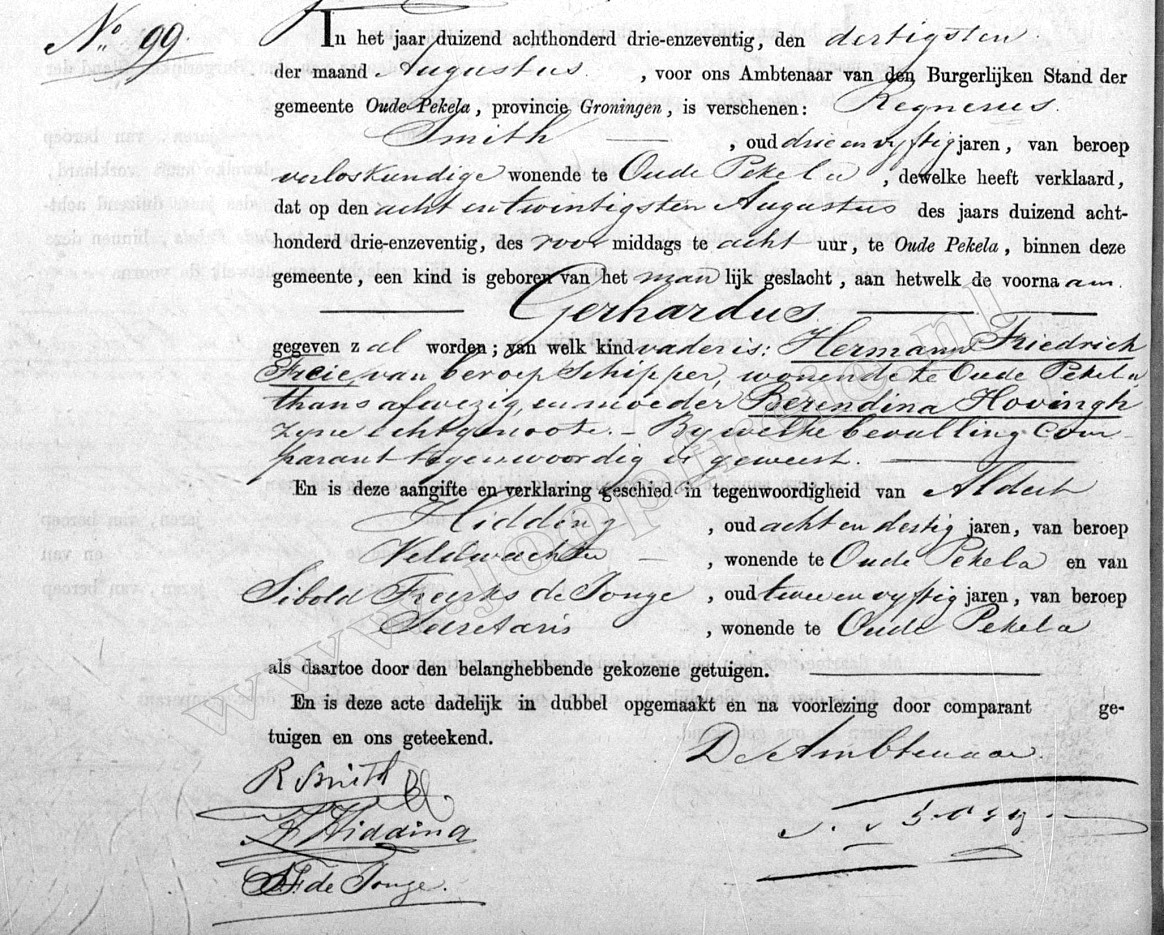 No. 99.
In het jaar duizend achthonderd drie-enzeventig, den dertigsten
der maand Augustus , voor ons Ambtenaar van den Burgerlijken Stand der
gemeente Oude Pekela, provincie Groningen, is verschenen: Regnerus
Smith — , oud drie en vyftig jaren, van beroep
verloskundige wonende te Oude Pekela , dewelke heeft verklaard,
dat op den acht en twintigsten Augustus des jaars duizend acht-
honderd drie-enzeventig, des voor middags te acht uur, te Oude Pekela, binnen deze
gemeente, een kind is geboren van het man lijk geslacht, aan hetwelk de voorna am
— Gerhardus. —
gegeven z al worden; van welk kind vader is: Hermann Friedrich
Freie, van beroep Schipper, wonende te Oude Pekela
thans afwezig, en moeder Berendina Hovingh
zyne echtgenoote. – By welke bevalling Com-
parant tegenwoordig is geweest. —
En is deze aangifte en verklaring geschied in tegenwoordigheid van Aldert
Hidding , oud acht en dertig jaren, van beroep
Veldwachter — , wonende te Oude Pekela en van
Sibold Freerks de Jonge , oud twee en vyftig jaren, van beroep
Secretaris , wonende te Oude Pekela
als daartoe door den belanghebbende gekozene getuigen. —
En is deze acte dadelijk in dubbel opgemaakt en na voorlezing door comparant ge-
tuigen en ons geteekend.
De Ambtenaar
R Smith
A Hidding
SF de Jonge.